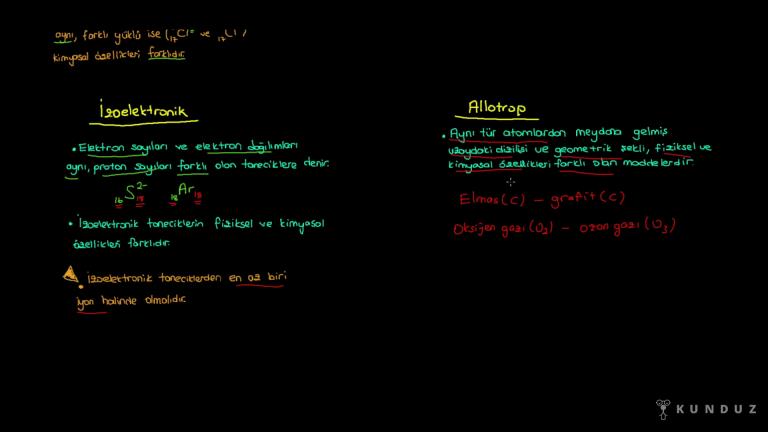 aynı, farklı yüklü ise (₁₇Cl⁻ ve ₁₇Cl)
kimyasal özellikleri farklıdır.
İzoelektronik
• Elektron sayıları ve elektron dağılımları
aynı, proton sayıları farklı olan taneciklere denir.
₁₆S₁₈²⁻ ₁₈Ar₁₈
• İzoelektronik taneciklerin fiziksel ve kimyasal
özellikleri farklıdır.
• İzoelektronik taneciklerden en az biri
iyon halinde olmalıdır.
Allotrop
• Aynı tür atomlardan meydana gelmiş
uzaydaki dizilişi ve geometrik şekli, fiziksel ve
kimyasal özellikleri farklı olan maddelerdir.
Elmas(C) – grafit(C)
Oksijen gazı(O₂) – ozon gazı(O₃)
KUNDUZ